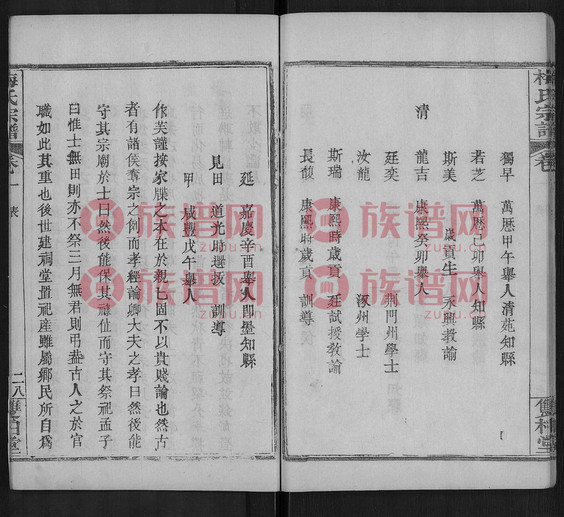 梅氏宗譜
卷一
雙桂堂
獨早　萬歷甲午舉人清苑知縣
若芝　萬歷己卯舉人知縣
斯美　歲貢生　永興教諭
清
龍吉　康熙癸卯舉人
廷奕　荆門州學士
汝龍　涿州學士
斯瑞　康熙時歲貢　廷試授教諭
長馥　康熙時歲貢　訓導
延　嘉慶辛酉舉人即墨知縣
見田　道光時選拔　訓導
甲　咸豐戊午舉人
作芙謹按家牒之本在於親亡固不以貴賤論也然古
者有諸侯奪宗之例而孝經論卿大夫之孝曰然後能
守其宗廟於士曰然後能保其祿位而守其祭祀孟子
曰惟士無田則亦不祭三月無君則弔葢古人之於官
職如此其重也後世建祠堂置祀產雖屬鄉民所自爲
梅氏宗譜
卷一　表
二八
雙桂堂
族谱网
zupu.cn
族谱网
zupu.cn
族谱网
zupu.cn
族谱网
zupu.cn